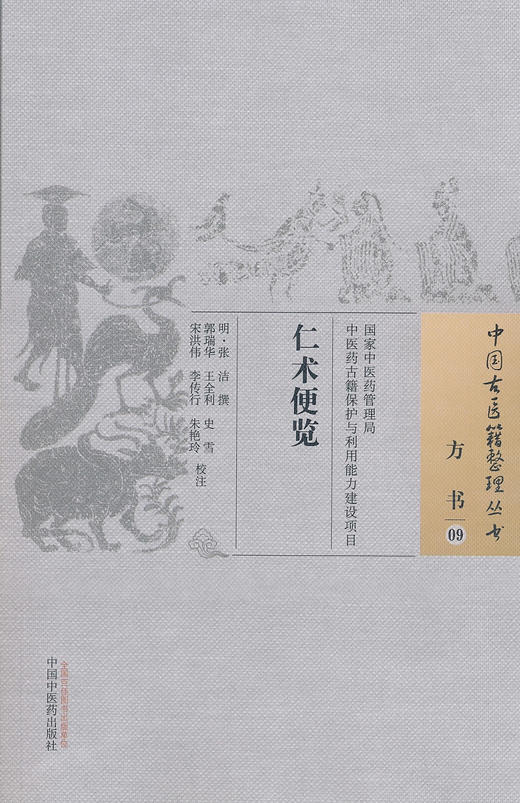 中国古医籍整理丛书
方书 09
国家中医药管理局
中医药古籍保护与利用能力建设项目
仁术便览
明·张 洁 撰
郭瑞华 王全利 史 雪
宋洪伟 李传行 朱艳玲 校注
全国百佳图书出版单位
中国中医药出版社